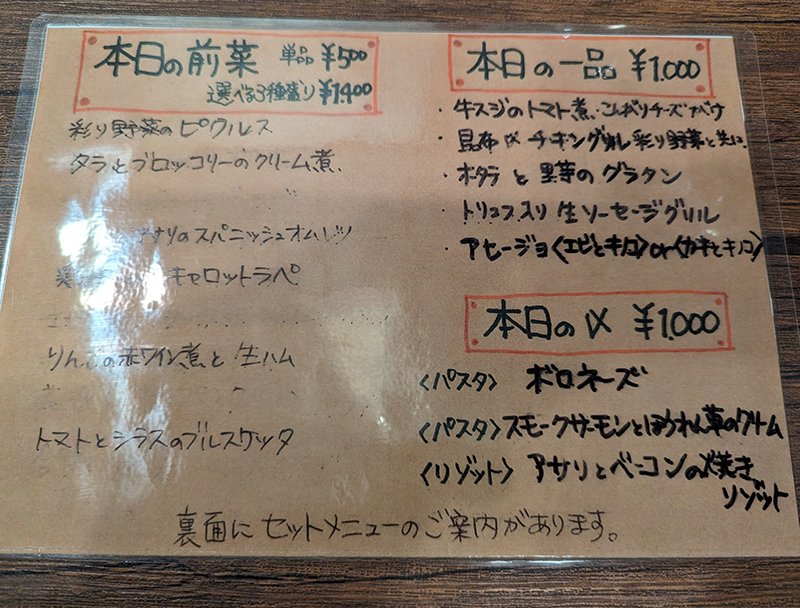 本日の前菜 単品 ¥500
選べる3種盛り ¥1,400
彩り野菜のピクルス
タラとブロッコリーのクリーム煮
アサリのスパニッシュオムレツ
キャロットラペ
りんごの赤ワイン煮と生ハム
トマトとシラスのブルスケッタ
本日の一品 ¥1,000
・牛スジのトマト煮 こんがりチーズ
・昆布〆チキングリル 彩り野菜と共に
・ホタテと里芋のグラタン
・トリュフ入り生ソーセージグリル
・アヒージョ〈エビとキノコ〉or〈カキとキノコ〉
本日の〆 ¥1,000
〈パスタ〉 ボロネーズ
〈パスタ〉スモークサーモンとほうれん草のクリーム
〈リゾット〉 アサリとベーコンの焼き
リゾット
裏面にセットメニューのご案内があります。